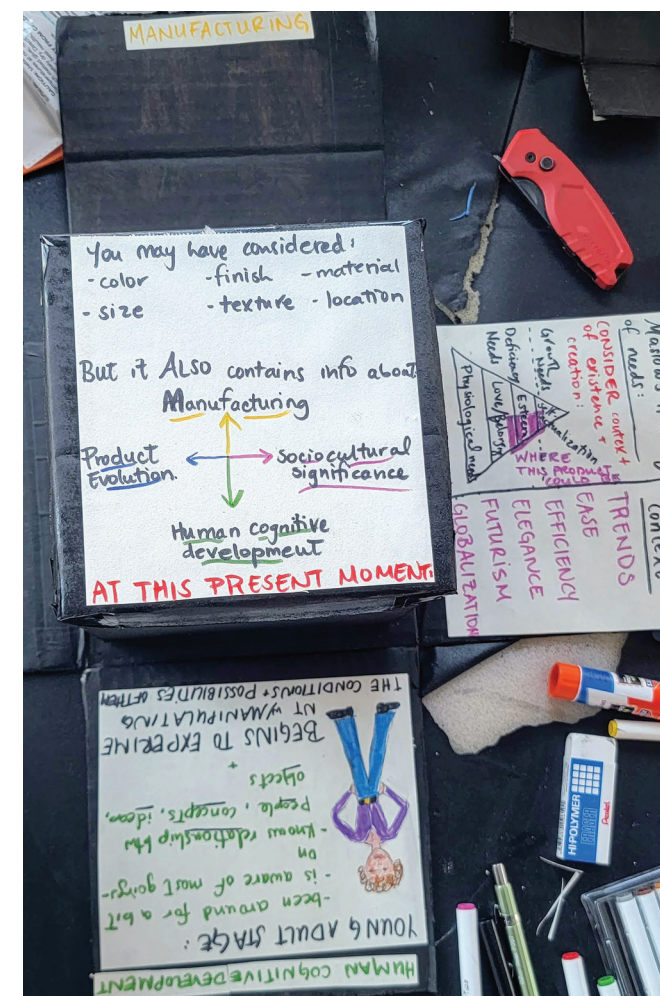 MANUFACTURING
You may have considered:
- color - finish - material
- size - texture - location
But it ALSO contains info about
Manufacturing
Product
Evolution.
Sociocultural
significance
Human cognitive
development
AT THIS PRESENT MOMENT.
of needs:
CONSIDER context +
of existence +
creation:
Growth
Needs
Deficiency
Needs
Esteem
Love/Belong
Physiological needs
WHERE
THIS PRODUCT
COULD
TRENDS
EASE
EFFICIENCY
ELEGANCE
FUTURISM
GLOBALIZATION
HUMAN COGNITIVE DEVELOPMENT
YOUNG ADULT STAGE:
- been around for a bit
- is aware of most goings-
on
- Knows relationship btw
people, concepts, ideas,
objects
+
BEGINS TO EXPERIME
NT w/MANIPULATING
THE CONDITIONS + POSSIBILITIES OF THEM
HI-POLYMER
ERASER
Pentel